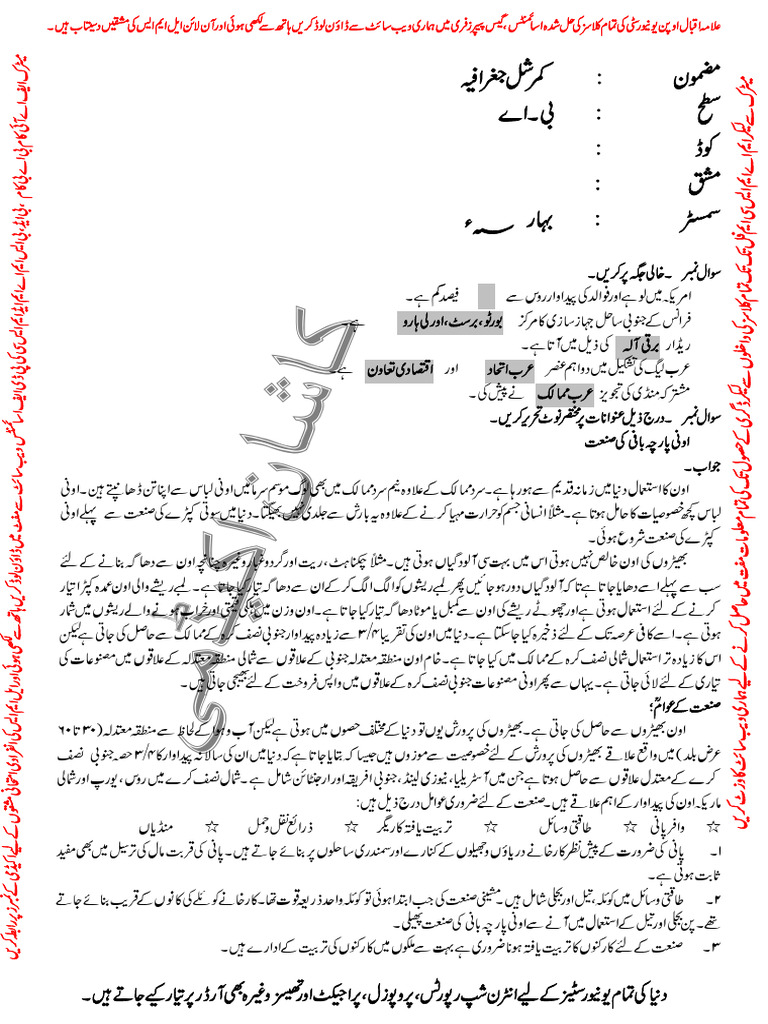 علامہ اقبال اوپن یونیورسٹی کی تمام کلاسز کی حل شدہ اسائنمنٹس، گیس پیپرز فری میں ہماری ویب سائٹ سے ڈاؤن لوڈ کریں ہاتھ سے لکھی ہوئی اور آن لائن ایل ایم ایس کی مشقیں دستیاب ہیں۔
مضمون : کمرشل جغرافیہ
سطح : بی۔اے
کوڈ :
مشق :
سمسٹر : بہار ؁ء
سوال نمبر ۔خالی جگہ پر کریں۔
امریکہ میں لوہے اور فولاد کی پیداوار روس سے فیصد کم ہے۔
فرانس کے جنوبی ساحل جہاز سازی کا مرکز بورڈو، برسٹ، اور لی ہارو ہے۔
ریڈار برقی آلہ کی ذیل میں آتا ہے۔
عرب لیگ کی تشکیل میں دو اہم عنصر عرب اتحاد اور اقتصادی تعاون ہے۔
مشترکہ منڈی کی تجویز عرب ممالک نے پیش کی۔
سوال نمبر ۔درج ذیل عنوانات پر مختصر نوٹ تحریر کریں۔
اونی پارچہ بافی کی صنعت
جواب۔
اون کا استعمال دنیا میں زمانہ قدیم سے ہو رہا ہے۔ سرد ممالک کے علاوہ نیم سرد ممالک میں بھی لوگ موسم سرما میں اونی لباس سے اپنا تن ڈھانپتے ہیں۔ اونی
لباس کچھ خصوصیات کا حامل ہوتا ہے۔ مثلاً انسانی جسم کو حرارت مہیا کرنے کے علاوہ یہ بارش سے جلدی نہیں بھیگتا۔ دنیا میں سوتی کپڑے کی صنعت سے پہلے اونی
کپڑے کی صنعت شروع ہوئی۔
بھیڑوں کی اون خالص نہیں ہوتی اس میں بہت سی آلودگیاں ہوتی ہیں۔ مثلاً چکناہٹ، ریت اور گرد و غبار وغیرہ چنانچہ اون سے دھاگہ بنانے کے لئے
سب سے پہلے اسے دھایا جاتا ہے تاکہ آلودگیاں دور ہو جائیں پھر لمبے ریشوں کو الگ الگ کر کے ان سے دھاگہ تیار کیا جاتا ہے۔ لمبے ریشے والی اون عمدہ کپڑا تیار
کرنے کے لئے استعمال ہوتی ہے اور چھوٹے ریشے کی اون سے کمبل یا موٹا دھاگہ تیار کیا جاتا ہے۔ اون وزن میں ہلکی قیمتی اور خراب نہ ہونے والے ریشوں میں شمار
ہوتی ہے۔ اسے کافی عرصہ تک کے لئے ذخیرہ کیا جا سکتا ہے۔ دنیا میں اون کی تقریباً ۳/۴ سے زیادہ پیداوار جنوبی نصف کرہ کے ممالک سے حاصل کی جاتی ہے لیکن
اس کا زیادہ تر استعمال شمالی نصف کرہ کے ممالک میں کیا جاتا ہے۔ خام اون منطقہ معتدلہ جنوبی کے علاقوں سے شمالی منطقہ معتدلہ کے علاقوں میں مصنوعات کی
تیاری کے لئے لائی جاتی ہے۔ یہاں سے پھر اونی مصنوعات جنوبی نصف کرہ کے علاقوں میں واپس فروخت کے لئے بھیجی جاتی ہیں۔
صنعت کے عوامل؟
اون بھیڑوں سے حاصل کی جاتی ہے۔ بھیڑوں کی پرورش یوں تو دنیا کے مختلف حصوں میں ہوتی ہے لیکن آب و ہوا کے لحاظ سے منطقہ معتدلہ (۳۰ تا ۶۰
عرض بلد) میں واقع علاقے بھیڑوں کی پرورش کے لئے خصوصیت سے موزوں ہیں جیسا کہ بتایا جاتا ہے کہ دنیا میں ان کی سالانہ پیداوار کا ۳/۴ حصہ جنوبی نصف
کرے کے معتدل علاقوں سے حاصل ہوتا ہے جن میں آسٹریلیا، نیوزی لینڈ، جنوبی افریقہ اور ارجنٹائن شامل ہے۔ شمال نصف کرے میں روس، یورپ اور شمالی
ماریکہ۔ اون کی پیداوار کے اہم علاقے ہیں۔ صنعت کے لئے ضروری عوامل درج ذیل ہیں:
☆ وافر پانی ☆ طاقتی وسائل ☆ تربیت یافتہ کاریگر ☆ ذرائع نقل و حمل ☆ منڈیاں
۱۔ پانی کی ضرورت کے پیش نظر کارخانے دریاؤں و جھیلوں کے کنارے اور سمندری ساحلوں پر بنائے جاتے ہیں۔ پانی کی قربت مال کی ترسیل میں بھی مفید
ثابت ہوتی ہے۔
۲۔ طاقتی وسائل میں کوئلہ، تیل اور بجلی شامل ہیں۔ مشینی صنعت کی جب ابتدا ہوئی تو کوئلہ واحد ذریعہ قوت تھا۔ کارخانے کوئلے کی کانوں کے قریب بنائے جاتے
تھے۔ پن بجلی اور تیل کے استعمال میں آنے سے اونی پارچہ بانی کی صنعت پھیلی۔
۳۔ صنعت کے لئے کارکنوں کا تربیت یافتہ ہونا ضروری ہے بہت سے ملکوں میں کارکنوں کی تربیت کے ادارے ہیں۔
دنیا کی تمام یونیورسٹیز کے لیے انٹرن شپ رپورٹس، پروپوزل، پراجیکٹ اور تھیسز وغیرہ بھی آرڈر پر تیار کیے جاتے ہیں۔
میٹرک سے لیکر ایم اے ایم ایس سی ایم فل تک تمام کلاسز کی داخلوں سے لیکر ڈگری کے حصول تک کی تمام معلومات مفت میں حاصل کرنے کے لیے ہماری ویب سائٹ کا وزٹ کریں
کاشان اکیڈمی